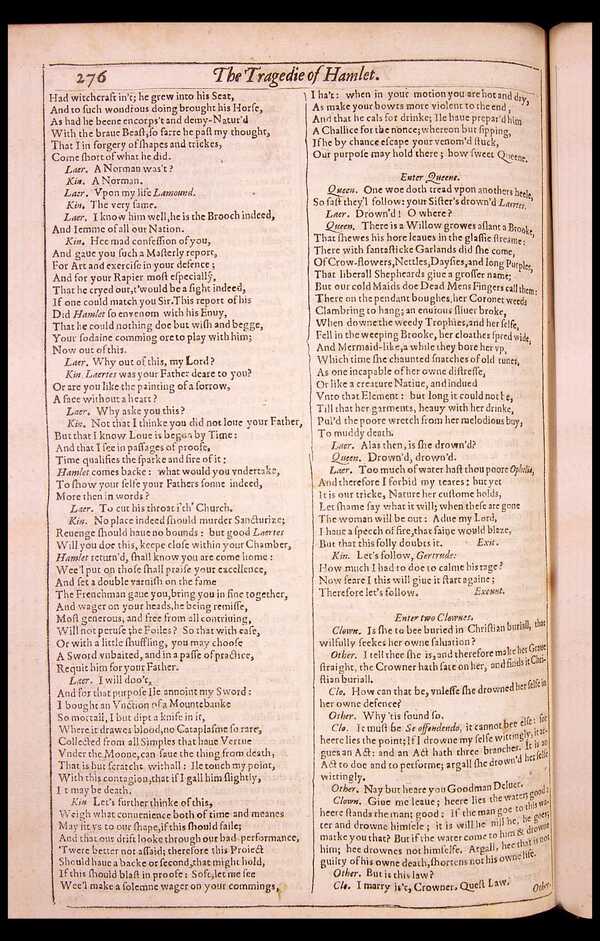 276
The Tragedie of Hamlet.
Had witchcraft in't; he grew into his Seat,
And to such wondrous doing brought his Horse,
As had he beene encorps't and demy-Natur'd
With the braue Beast, so farre he past my thought,
That I in forgery of shapes and trickes,
Come short of what he did.
Laer. A Norman was't?
Kin. A Norman.
Laer. Vpon my life Lamound.
Kin. The very same.
Laer. I know him well, he is the Brooch indeed,
And Iemme of all our Nation.
Kin. Hee mad confession of you,
And gaue you such a Masterly report,
For Art and exercise in your defence;
And for your Rapier most especially,
That he cryed out, t'would be a sight indeed,
If one could match you Sir. This report of his
Did Hamlet so envenom with his Enuy,
That he could nothing doe but wish and begge,
Your sodaine comming ore to play with him;
Now out of this.
Laer. Why out of this, my Lord?
Kin. Laertes was your Father deare to you?
Or are you like the painting of a sorrow,
A face without a heart?
Laer. Why aske you this?
Kin. Not that I thinke you did not loue your Father,
But that I know Loue is begun by Time:
And that I see in passages of proofe,
Time qualifies the sparke and fire of it:
Hamlet comes backe: what would you vndertake,
To show your selfe your Fathers sonne indeed,
More then in words?
Laer. To cut his throat i'th' Church.
Kin. No place indeed should murder Sancturize;
Reuenge should haue no bounds: but good Laertes
Will you doe this, keepe close within your Chamber,
Hamlet return'd, shall know you are come home:
Wee'l put on those shall praise your excellence,
And set a double varnish on the fame
The Frenchman gaue you, bring you in fine together,
And wager on your heads, he being remisse,
Most generous, and free from all contriuing,
Will not peruse the Foiles? So that with ease,
Or with a little shuffling, you may choose
A Sword vnbaited, and in a passe of practice,
Requit him for your Father.
Laer. I will doo't,
And for that purpose Ile annoint my Sword:
I bought an Vnction of a Mountebanke
So mortall, I but dipt a knife in it,
Where it drawes blood, no Cataplasme so rare,
Collected from all Simples that haue Vertue
Vnder the Moone, can saue the thing from death,
That is but scratcht withall: Ile touch my point,
With this contagion, that if I gall him slightly,
It may be death.
Kin Let's further thinke of this,
Weigh what conuenience both of time and meanes
May fit vs to our shape, if this should faile;
And that our drift looke through our bad performance,
'Twere better not assaid; therefore this Proiect
Should haue a backe or second, that might hold,
If this should blast in proofe: Soft, let me see
Wee'l make a solemne wager on your commings,
I ha't: when in your motion you are hot and dry,
As make your bowts more violent to the end,
And that he cals for drinke; Ile haue prepar'd him
A Challice for the nonce; whereon but sipping,
If he by chance escape your venom'd stuck,
Our purpose may hold there; how sweet Queene.
Enter Queene.
Queen. One woe doth tread vpon anothers heele,
So fast they'l follow: your Sister's drown'd Laertes.
Laer. Drown'd! O where?
Queen. There is a Willow growes aslant a Brooke,
That shewes his hore leaues in the glassie streame:
There with fantasticke Garlands did she come,
Of Crow-flowers, Nettles, Daysies, and long Purples,
That liberall Shepheards giue a grosser name;
But our cold Maids doe Dead Mens Fingers call them:
There on the pendant boughes, her Coronet weeds
Clambring to hang; an enuious sliuer broke,
When downe the weedy Trophies, and her selfe,
Fell in the weeping Brooke, her cloathes spred wide,
And Mermaid-like, a while they bore her vp,
Which time she chaunted snatches of old tunes,
As one incapable of her owne distresse,
Or like a creature Natiue, and indued
Vnto that Element: but long it could not be,
Till that her garments, heauy with her drinke,
Pul'd the poore wretch from her melodious buy,
To muddy death.
Laer. Alas then, is she drown'd?
Queen. Drown'd, drown'd.
Laer. Too much of water hast thou poore Ophelia,
And therefore I forbid my teares: but yet
It is our tricke, Nature her custome holds,
Let shame say what it will; when these are gone
The woman will be out: Adue my Lord,
I haue a speech of fire, that faine would blaze,
But that this folly doubts it. Exit.
Kin. Let's follow, Gertrude:
How much I had to doe to calme his rage?
Now feare I this will giue it start againe;
Therefore let's follow. Exeunt.
Enter two Clownes.
Clown. Is she to bee buried in Christian buriall, that
wilfully seekes her owne saluation?
Other. I tell thee she is, and therefore make her Graue
straight, the Crowner hath sate on her, and finds it Chri-
stian buriall.
Clo. How can that be, vnlesse she drowned her selfe in
her owne defence?
Other. Why 'tis found so.
Clo. It must be Se offendendo, it cannot bee else: for
heere lies the point; If I drowne my selfe wittingly, it ar-
gues an Act: and an Act hath three branches. It is an
Act to doe and to performe; argall she drown'd her selfe
wittingly.
Other. Nay but heare you Goodman Deluer.
Clown. Giue me leaue; heere lies the water; good:
heere stands the man; good: If the man goe to this wa-
ter and drowne himselfe; it is will he nill he, he goes;
marke you that? But if the water come to him & drowne
him; hee drownes not himselfe. Argall, hee that is not
guilty of his owne death, shortens not his owne life.
Other. But is this law?
Clo. I marry is't, Crowner. Quest Law.
Other.